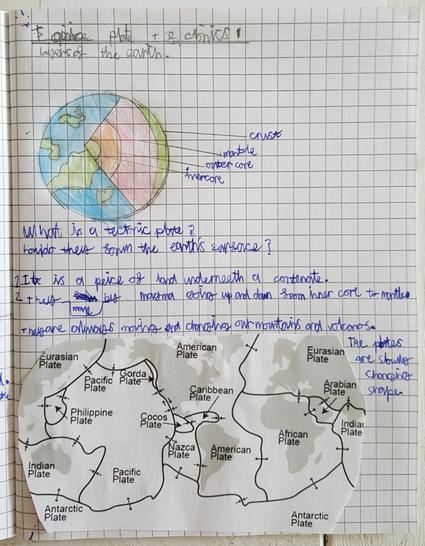 plate tectonics
layers of the earth.
crust
mantle
outer core
inercore
What is a tectric plate?
how do they form the earth's surface?
1 It is a peice of land underneath a contenate.
2 They move by magma going up and down from inner core to mantle
They are allways moving and changing our mountains and volcanos.
The plates
are slowly
changing
shape.
Eurasian
Plate
American
Plate
Eurasian
Plate
Pacific
Plate
Gorda
Plate
Caribbean
Plate
Arabian
Plate
Philippine
Plate
Cocos
Plate
Nazca
Plate
American
Plate
African
Plate
Indian
Plate
Indian
Plate
Pacific
Plate
Antarctic
Plate
Antarctic
Plate